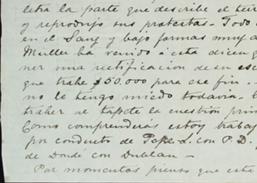 letra la parte que describe el
y reprodujo sus protestas. Todo
en el Sang y bajo formas muy
Muller ha venido á ésta dicen
ner una rectificacion de su
que trahe $50.000 para ese fin
no le tengo miedo todavia.
traher al tapete la cuestión
Como comprenderá estoy
por conducto de Pepe L. con P. D.
de Donde con Dublan
Por momentos pienso que este